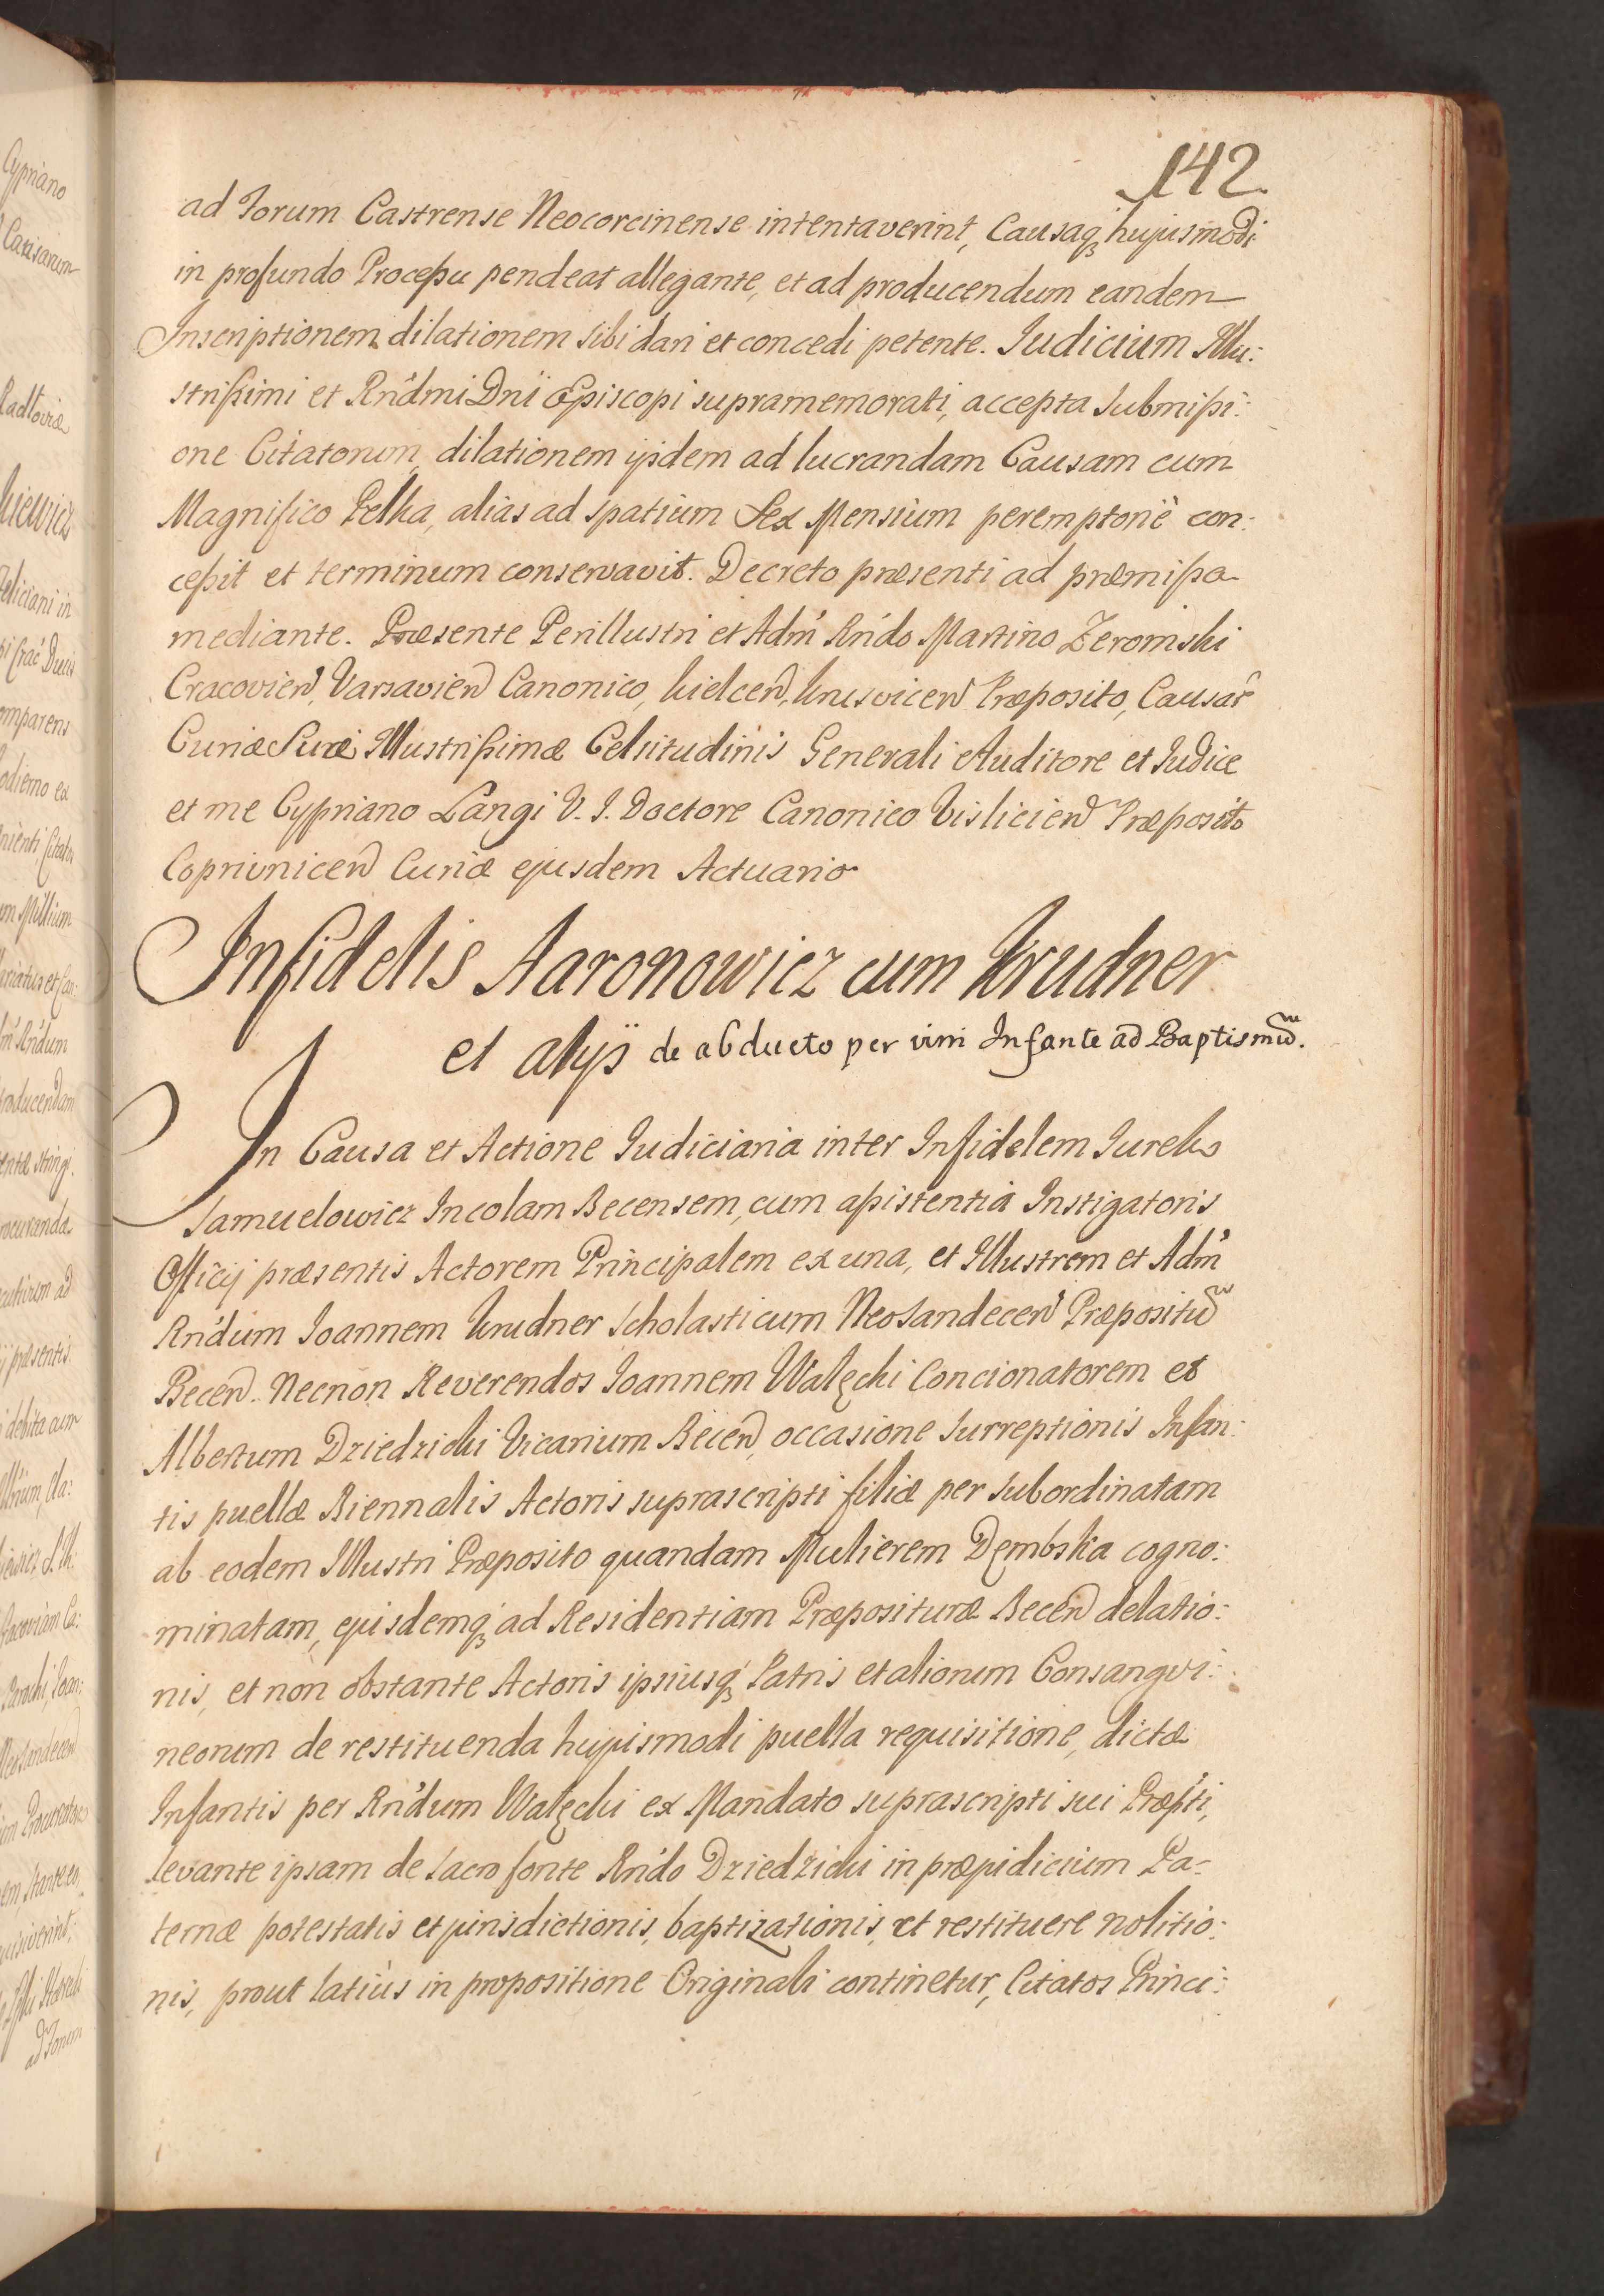 142
ad Forum Castrense Neocorcinense intentaverint, Causaq₃ hujusmodi
in profundo Processu pendeat allegante, et ad producendum eandem
Inscriptionem dilationem sibi dari et concedi petente. Judicium Illu:
strissimi et Rńdmi Dni Episcopi supramemorati, accepta submissi:
one Citatorum, dilationem ijsdem ad lucrandam Causam cum
Magnifico Pełka, alias ad spatium Sex Mensium peremptoriè con:
cessit et terminum conservavit. Decreto præsenti ad præmissa
mediante. Præsente Perillustri et Adm̃ Rńdo Martino Żeromski
Cracovieñ, Varsavieñ Canonico, Kielceñ, Krusviceñ Præposito, Causar̃
Curiæ Suæ Illustrissimæ Celsitudinis Generali Auditore et Judice
et me Cypriano Langi V. J. Doctore Canonico Vislicieñ Præposito
Coprivniceñ Curiæ ejusdem Actuario
Infidelis Aaronowicz cum Krudner
et alijs de abducto per vim Infante ad Baptismũ.
In Causa et Actione Judiciaria inter Infidelem Jurek
Samuelowicz Incolam Becensem, cum assistentia Instigatoris
Officij præsentis Actorem Principalem ex una, et Illustrem et Adm̃
Rńdum Joannem Krudner Scholasticum Neosandeceñ Præpositũ
Beceñ. Necnon Reverendos Joannem Walęcki Concionatorem et
Albertum Dziedzicki Vicarium Beceñ, occasione surreptionis Infan:
tis puellæ Biennalis Actoris suprascripti filiæ per subordinatam
ab eodem Illustri Præposito quandam Mulierem Dembska cogno:
minatam, ejusdemq₃ ad Residentiam Præposituræ Beceñ delatio:
nis, et non obstante Actoris ipsiusq₃ Patris et aliorum Consangvi:
neorum de restituenda hujusmodi puella requisitione, dictæ
Infantis per Rńdum Walęcki ex Mandato suprascripti sui Præp̃ti,
levante ipsam de sacro fonte Rńdo Dziedzicki in præjudicium Pa-
ternæ potestatis et jurisdictionis, baptisationis, et restituere nolitio:
nis, prout latiùs in propositione Originali continetur, Citatos Princi: